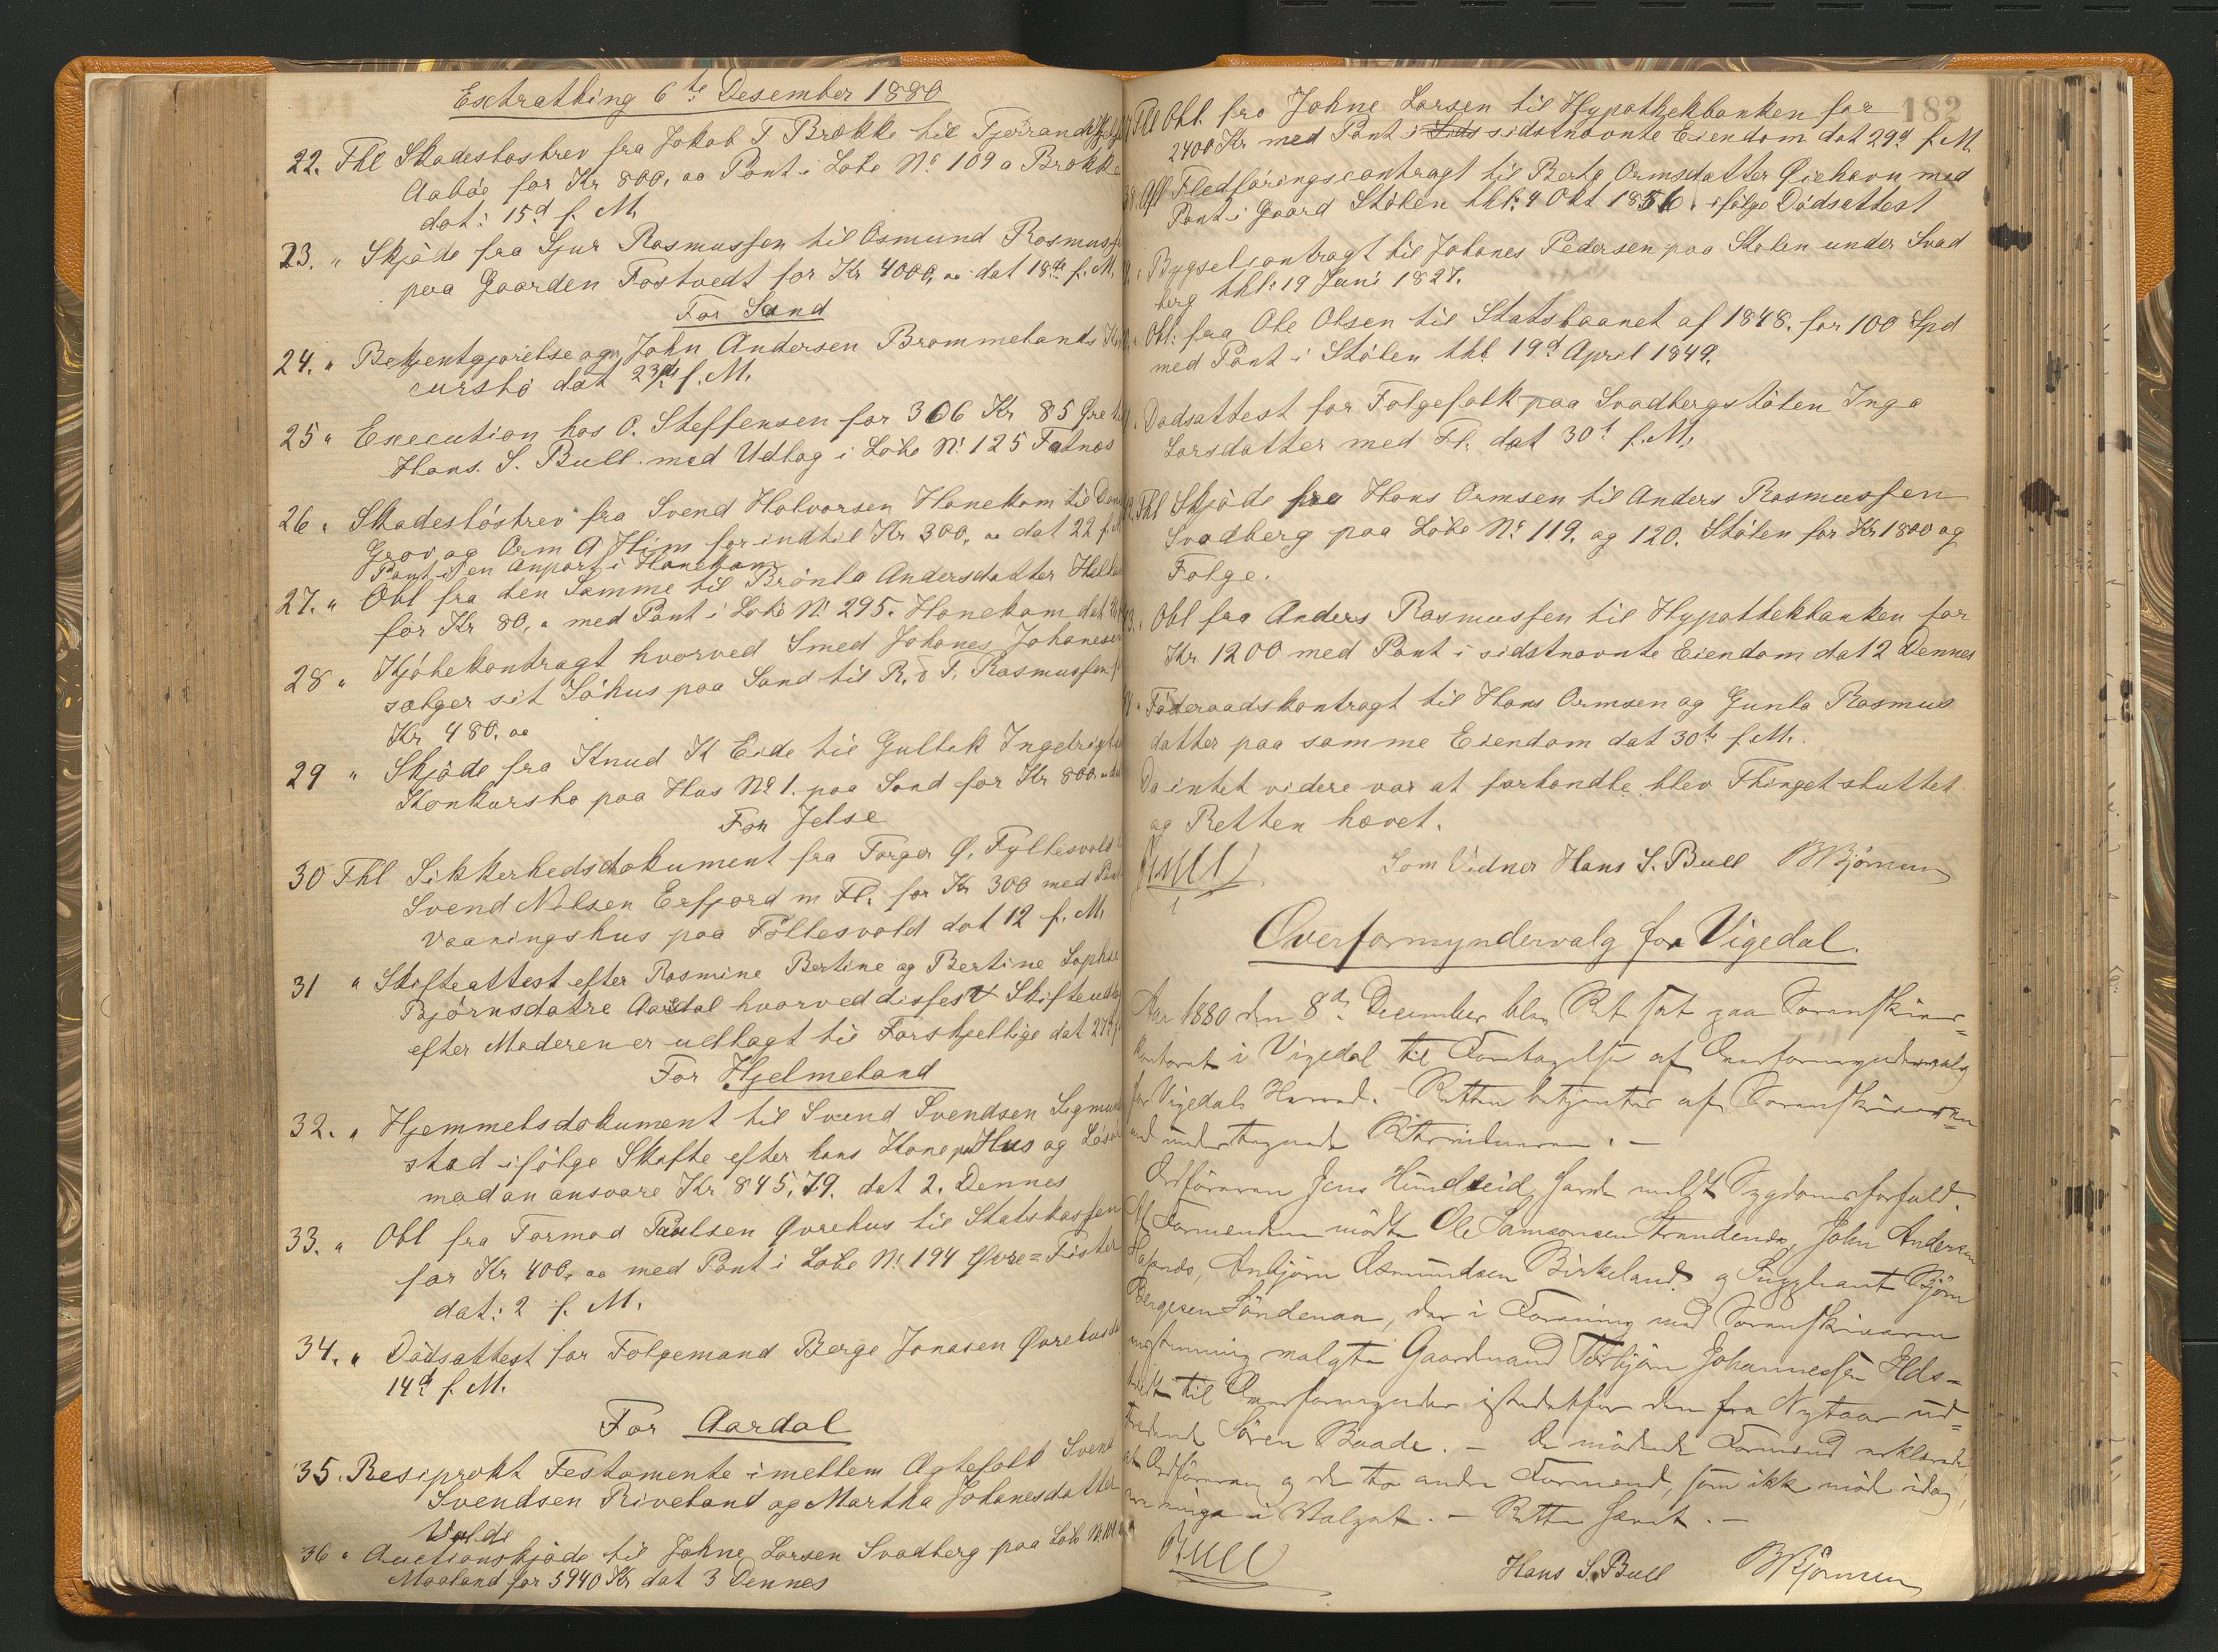 Extrathing 6te Desember 1880
22. Thl Skadesløsbrev fra Jakob T Brække til Tjerrand
Aabøe for Kr 800, oo Pant i Løbe No 109 a Brække
dat: 15d f. M.
23. " Skjøde fra Sjur Rasmussen til Osmund Rasmussen
paa Gaarden Fostvedt for Kr 4000, oo dat 18de f. M.
For Sand
24. " Bekjentgjørelse om John Andersen Brommelands Kon
cursbo dat 23de f. M.
25 " Execution hos O. Steffensen for 306 Kr 85 Øre til
Hans. S. Bull med Udlæg i Løbe No 125 Fatnæs
26 " Skadesløsbrev fra Svend Halvorsen Hanekam til
Grov og Orm A Him for indtil Kr 300, oo dat 22 f. M
Pant i en Anpart i Hanekam
27. " Obl fra den Samme til Brønla Andersdatter
for Kr 80, " med Pant i Løbe No 295. Hanekam dat
28 " Kjøbekontragt hvorved Smed Johanes Johanesen
sælger sit Søhus paa Sand til R. & T. Rasmussen for
Kr 480. oo
29 " Skjøde fra Knud K Eide til Gullek Ingebrigtsens
Konkursbo paa Hus No 1. paa Sand for Kr 800
For Jelse
30 Thl Sikkerhedsdokument fra Torger O. Fyllesvold til
Svend Nilsen Erfjord m Fl. for Kr 300 med Pant
Vaaningshus paa Föllesvold dat 12 f. M.
31 " Skifteattest efter Rasmine Bertine og Bertine Sophie
Bjørnsdatre Aardal hvorved disses Skifteudlæg
efter Moderen er udlagt til Forskjellige dat 27 f
For Hjelmeland
32. " Hjemmelsdokument til Svend Svendsen Sigmund
stad ifølge Skifte efter hans Kone paa Hus og Løsøre
mod an ansvare Kr 845,79. dat 2. Dennes
33. " Obl fra Tormod Paulsen Øvrehus til Statskassen
for Kr 400, oo med Pant i Løbe No 194 Øvre=Fister
dat: 2 f. M.
34. " Dødsattest for Følgemand Berge Jonasen Øvrehus dat
14d f. M.
For Aardal
35. Resiprokt Testamente imellem Ægtefolk Svend
Svendsen Riveland og Martha Johanesdatter
Valde
36 " Auctionskjøde til Johne Larsen Svadberg paa Løbe No
Maaland for 5940 Kr dat 3 Dennes
182
Thl Obl. fra Johne Larsen til Hypothekbanken for
2400 Kr med Pant i sidstnævnte Eiendom dat 29d f. M.
38. Afl Fledføringscontragt til Berta Ormsdatter Qiehavn med
Pant i Gaard Stølen thl: 4 Okt 1856. ifølge Dødsattest
" Bygselcontragt til Johanes Pedersen paa Stølen under Svad
berg thl: 19 Juni 1827.
" Obl: fra Ole Olsen til Statslaanet af 1848. for 100 Spd
med Pant i Stølen thl 19d April 1849.
Dødsattest for Følgefolk paa Svadbergstølen Inga
Larsdatter med Fl. dat 30t f. M.
Thl Skjøde fra Hans Ormsen til Anders Rasmussen
Svadberg paa Løbe No 119. og 120. Stølen for Kr 1800 og
Følge.
" Obl fra Anders Rasmussen til Hypothekbanken for
Kr 1200 med Pant i sidstnævnte Eiendom dat 2 Dennes
" Føderaadskontragt til Hans Ormsen og Gunla Rasmus
datter paa samme Eiendom dat 30te f. M.
Da intet videre var at forhandle blev Thinget sluttet
og Retten hævet.
Bull Som Vidner Hans S. Bull B Bjørnsen
Overformyndervalg for Vigedal.
Aar 1880 den 8de December blev Ret sat paa Sorenskriver=
kontoret i Vigedal til Foretagelse af Overformyndervalg
for Vigedals Herred. Retten betjentes af Sorenskriveren
med undertegnede Retsvidner. –
Ordføreren Jens Hundseid havde meldt Sygdomsforfald.
Af Formænden mødte Ole Samsonsen Strandenæs, John Andersen
Hafsnes, Anbjørn Osmundsen Birkeland og Suppleant Bjørn
Børgesen Søndenaa, der i Forening med Sorenskriveren
enstemmig valgte Gaardmand Torbjørn Johannessen Ilds=
tvedt til Overformynder istedetfor den fra Nytaar ud=
trædende Søren Baade. – De mødende Formænd erklærede
at Ordføreren og de to andre Formænd, som ikke møder idag,
ere enige i Valget. – Retten hævet. –
Bull Hans S. Bull B Bjørnsen